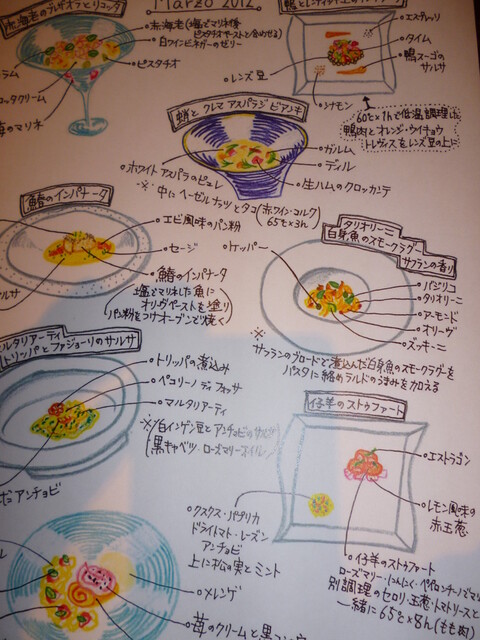 Marzo 2012
赤海老のデザオフとリコッタ
赤海老(塩でマリネ後
ピスタチオペーストと合わせる)
白ワインビネガーのゼリー
ピスタチオ
ラム
コッタクリーム
のマリネ
エスプレッソ
タイム
鴨スーゴの
サルサ
レンズ豆
シナモン
60℃×1hで低温調理した
鴨肉とオレンジ・ウイキョウ
トレヴィスをレンズ豆の上に
蛸と クレマ アスパラジ ビアンキ
ホワイトアスパラのピュレ
ガルム
ディル
生ハムのクロッカンテ
※ 中にヘーゼルナッツとタコ(赤ワイン・コルク)
65℃×3h
鰆のインパナータ
エビ風味のパン粉
セージ
鰆のインパナータ
(塩でマリネした魚に
オリーヴペーストを塗り
パン粉をつけオーブンで焼く)
ルサ
タリオリーニ
白身魚のスモークラグー
サフランの香り
ケッパー
バジリコ
タリオリーニ
アーモンド
オリーヴ
ズッキーニ
※ サフランのブロードと煮込んだ白身魚のスモークラグーを
パスタに絡めラルドのうまみを加える
マルタリアーティ
トリッパとファジョーリのサルサ
トリッパの煮込み
ペコリーノ ディ フォッサ
マルタリアーティ
※(白インゲン豆とアンチョビのサルサ
黒キャベツ・ローズマリーオイル)
アンチョビ
仔羊のストゥファート
エストラゴン
レモン風味の
赤玉葱
クスクス・パプリカ
ドライトマト・レーズン
アンチョビ
上に松の実とミント
仔羊のストゥファート
ローズマリー・にんにく・ペペロンチーノでマリ
別調理のセロリ・玉葱・トマトソースと
一緒に65℃×8h(もも肉)
メレンゲ
苺のクリームと黒コ